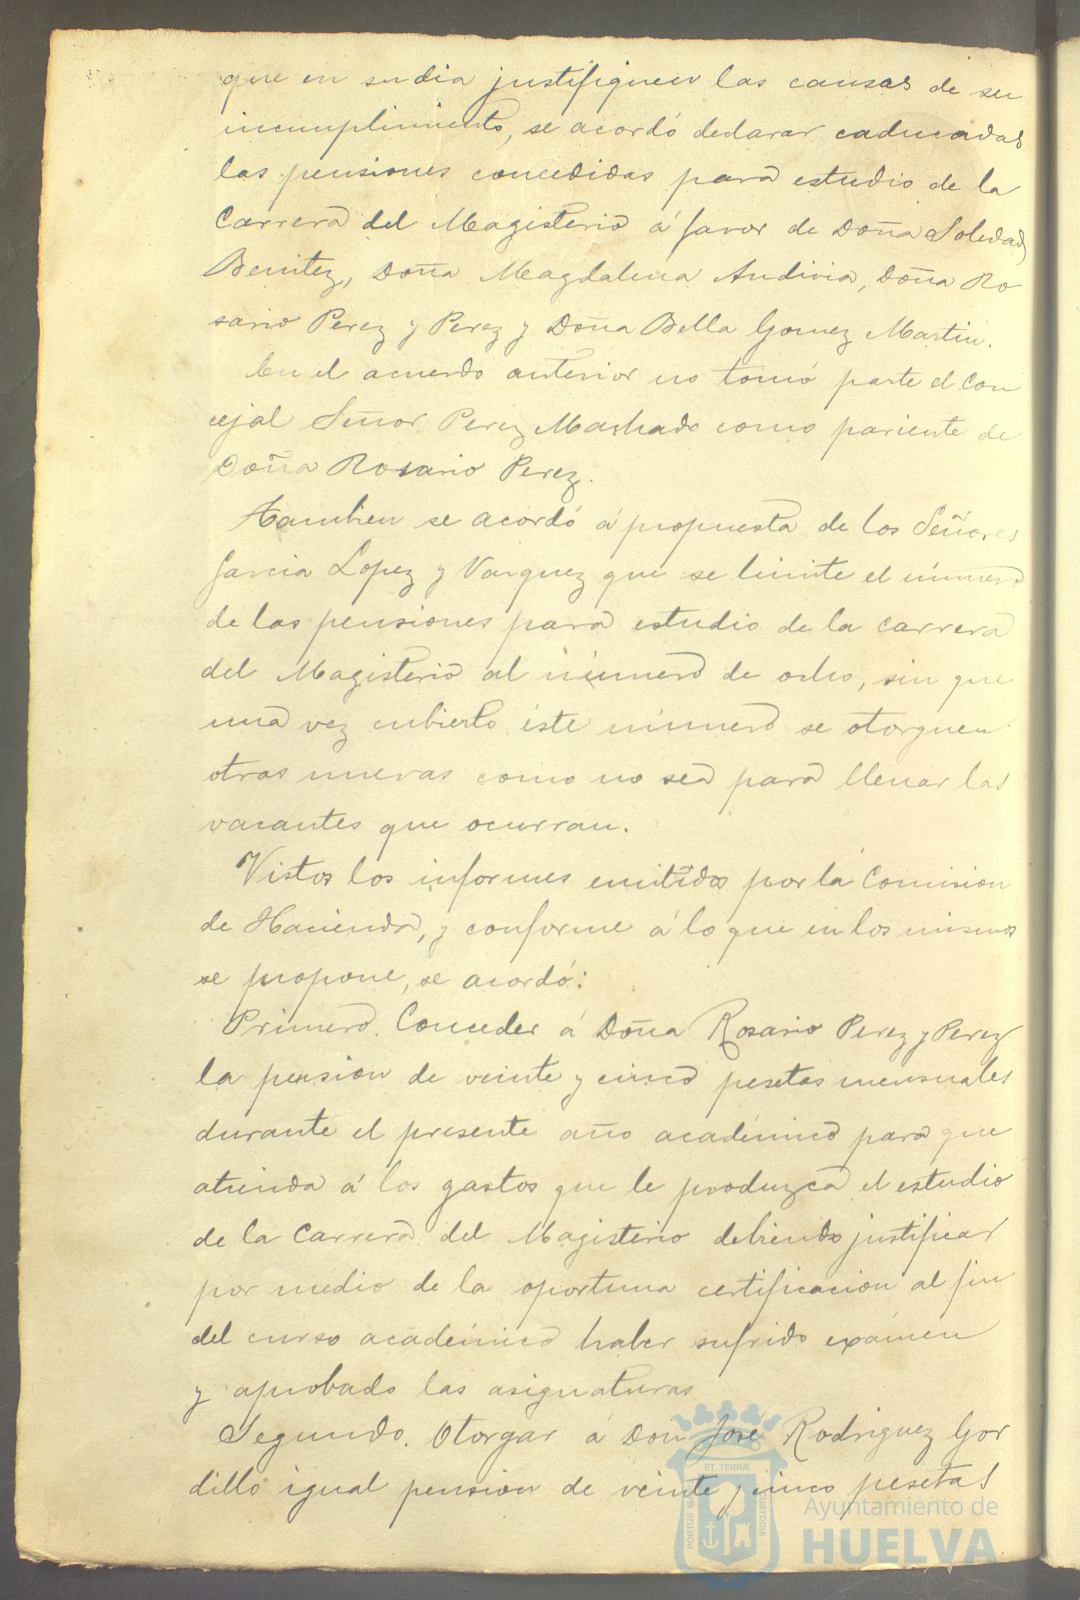 que en su dia justifiquen las causas de su
incumplimiento, se acordó declarar caducadas
las pensiones concedidas para estudio de la
Carrera del Magisterio á favor de Doña Soledad
Benitez, Doña Magdalena Andivia, Doña Ro
sario Perez y Perez y Doña Bella Gomez Martin.
En el acuerdo anterior no tomó parte el Con
cejal Señor Perez Machado como pariente de
Doña Rosario Perez.
Tambien se acordó á propuesta de los Señores
Garcia Lopez y Vazquez que se limite el número
de las pensiones para estudio de la carrera
del Magisterio al número de ocho, sin que
una vez cubierto éste número se otorguen
otras nuevas como no sea para llenar las
vacantes que ocurran.
Vistos los informes emitidos por la Comision
de Hacienda, y conforme á lo que en los mismos
se propone, se acordó:
Primero. Conceder á Doña Rosario Perez y Perez
la pension de veinte y cinco pesetas mensuales
durante el presente año académico para que
atienda á los gastos que le produzca el estudio
de la Carrera del Magisterio debiendo justificar
por medio de la oportuna certificacion al fin
del curso académico haber sufrido exámen
y aprobado las asignaturas
Segundo. Otorgar á Don José Rodriguez Gor
dillo igual pension de veinte y cinco pesetas
ET TERRÆ
PORTUS MARIS
CUSTODIA
Ayuntamiento de
HUELVA